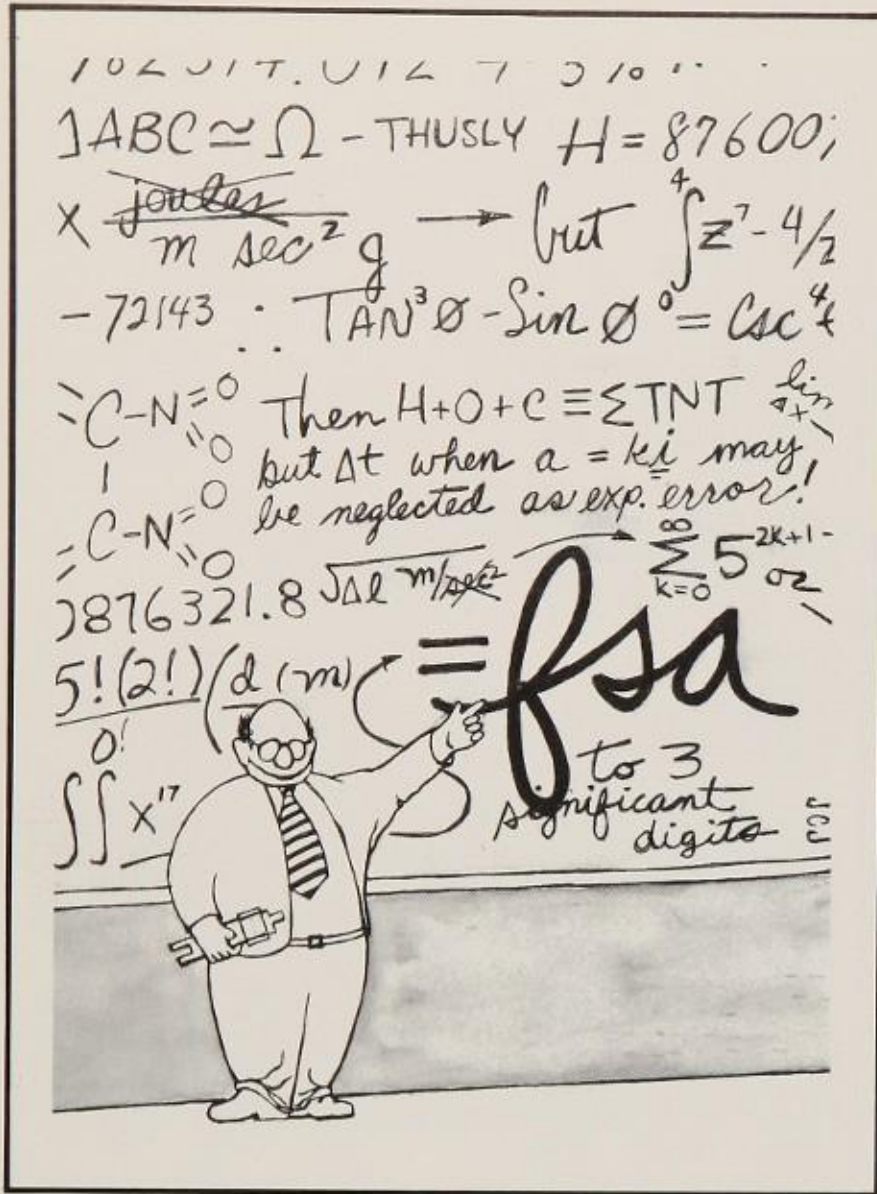 JABC ≃ Ω - THUSLY H = 87600;
x joules / m sec² g → but ∫₀⁴ z⁷ - 4/2
-72143 ∴ TAN³Ø - Sin Ø = Csc⁴t
C-N=O Then H+O+C ≡ ΣTNT lim
=O but Δt when a = ki may
C-N=O be neglected as exp. error!
=O
876321.8 √Δl m/sec² → ∞ Σ k=0 5²ᵏ⁺¹ -
or
5!(2!) (d (m) = fsa
0!
∫∫ x¹⁷ to 3
significant
digits
JCJ